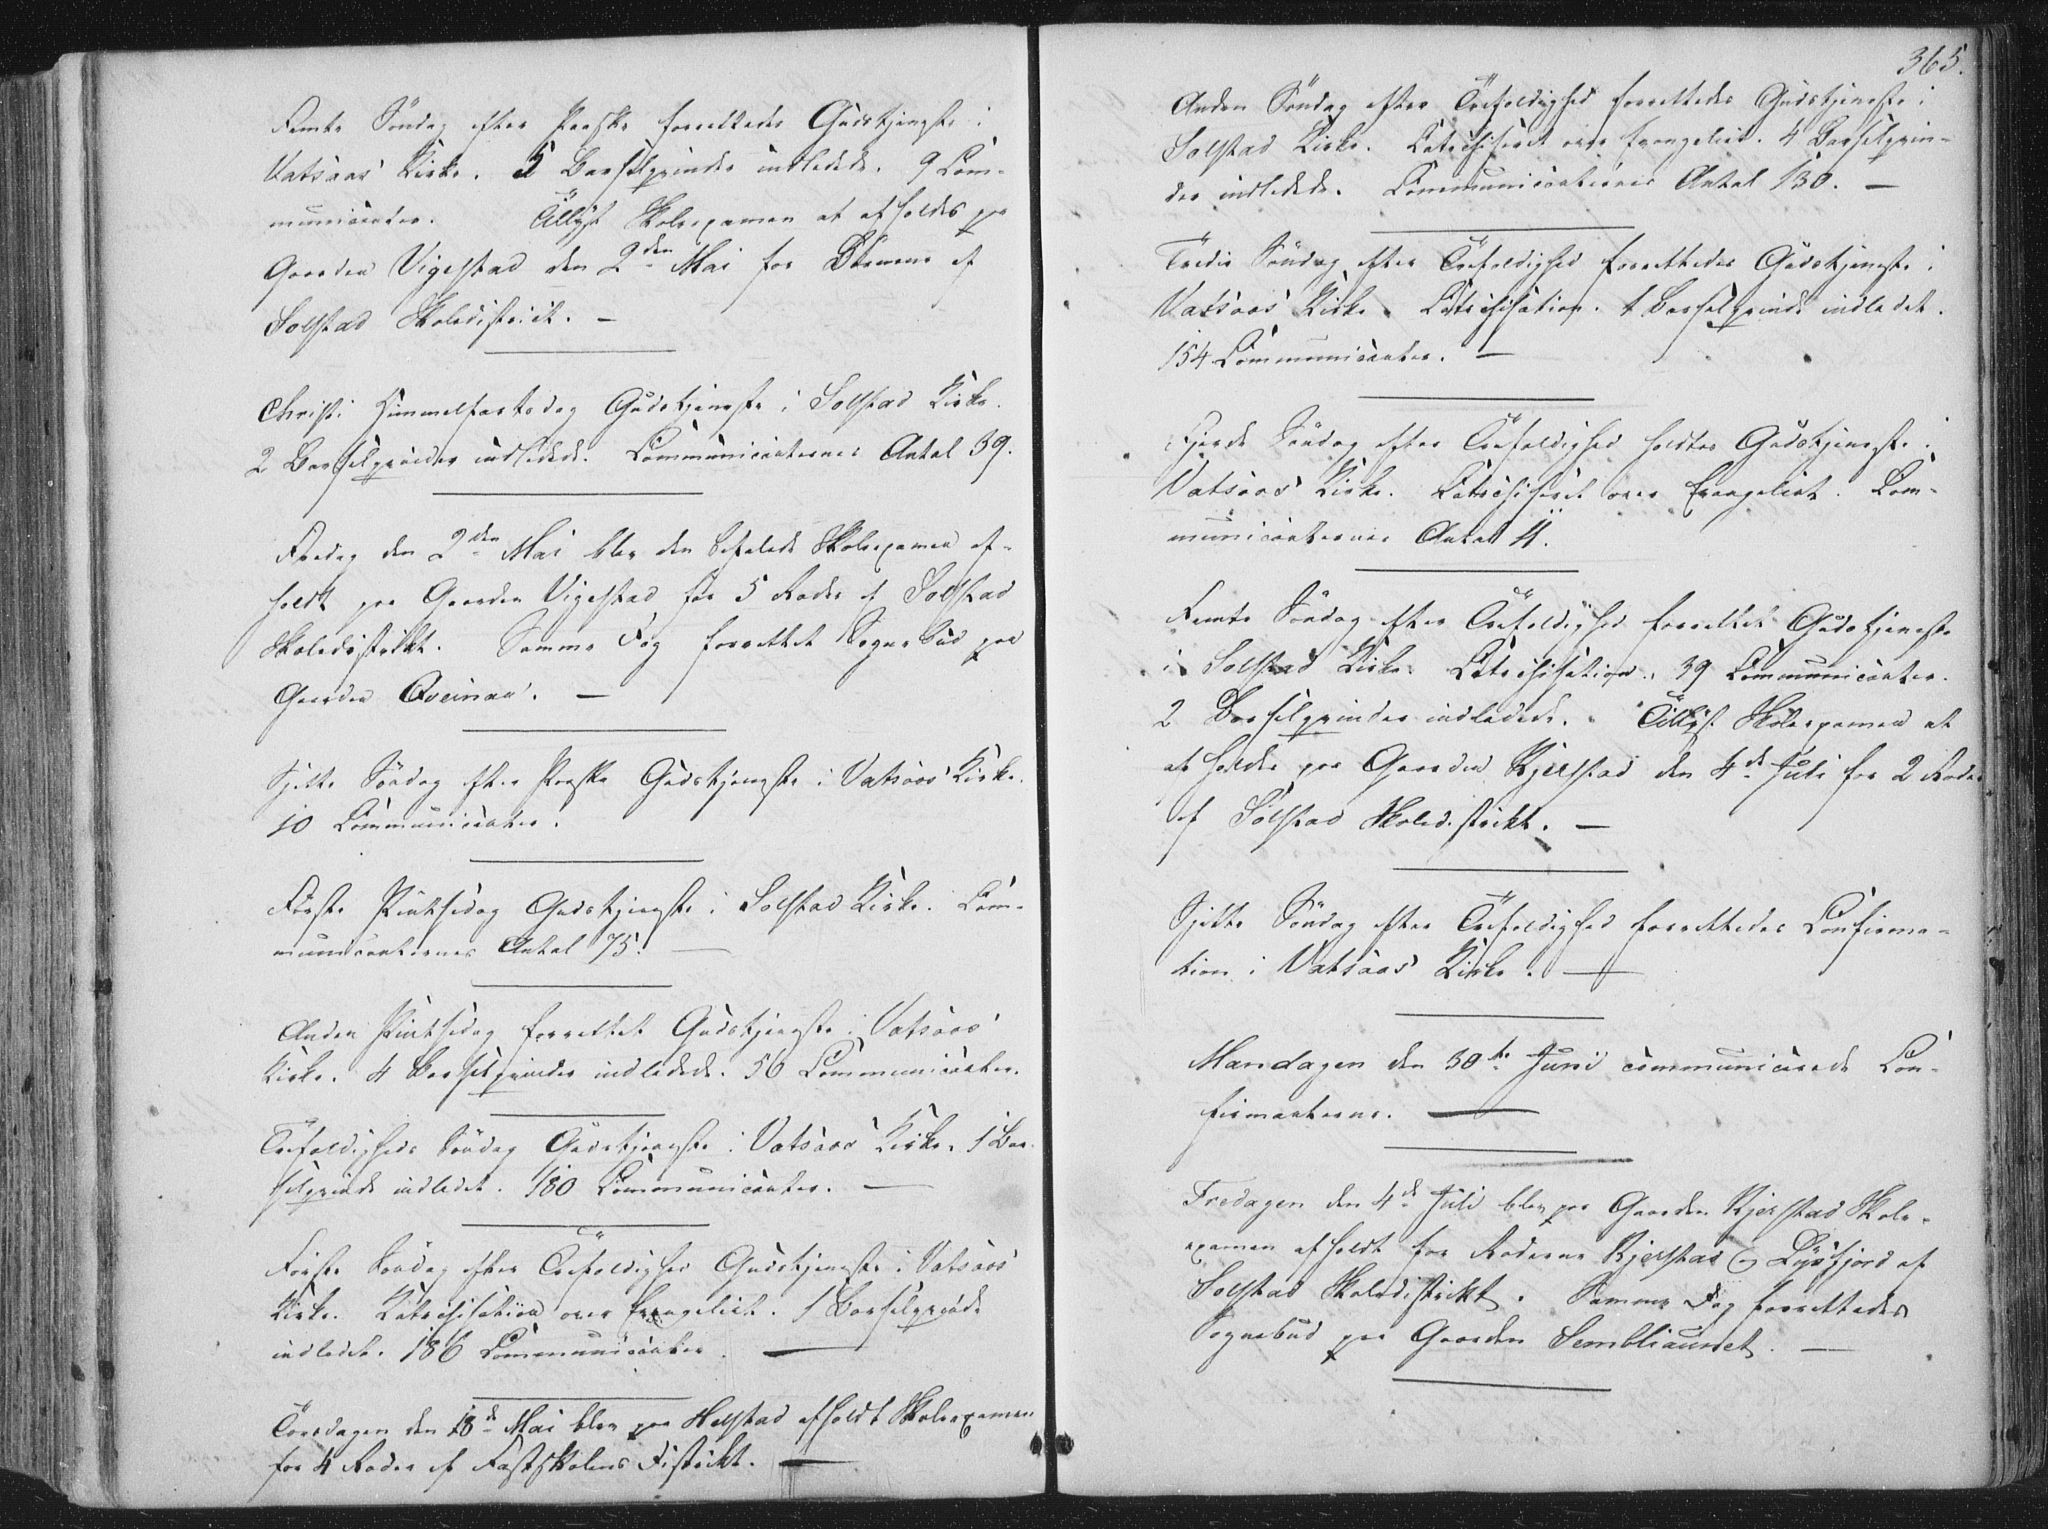 Femte Söndag efter Paaske forrettedes Gudstjeneste i
Vatsaas Kirke. 2 Barselqvinder indledede. 9 Com-
municanter. Tillyst Skoleexamen at afholdes paa
Gaarden Vigestad den 2den Mai for Börnene af
Solstad Skoledistrict. —
Christi Himmelfartsdag Gudstjeneste i Solstad Kirke.
2 Barselqvinder indledede. Communicanternes Antal 39.
Fredag den 2den Mai blev den befalede Skoleexamen af-
holdt paa Gaarden Vigestad for 5 Roder af Solstad
Skoledistrikt. Samme Dag forrettet Sognebud paa
Gaarden Qveinaa. —
Sjette Söndag efter Paaske Gudstjeneste i Vatsaas Kirke.
10 Communicanter.
Förste Pintsedag Gudstjeneste i Solstad Kirke. Com-
municanternes Antal 75. —
Anden Pintsedag forrettet Gudstjeneste i Vatsaas
Kirke. 4 Barselqvinder indledede. 56 Communicanter.
Trefoldigheds Söndag Gudstjeneste i Vatsaas Kirke. 1 Bar-
selqvinde indledet. 180 Communicanter. —
Förste Söndag efter Trefoldighed Gudstjeneste i Vatsaas
Kirke. Katechisation over Evangeliet. 1 Barselqvinde
indledet. 186 Communicanter. —
Torsdagen den 18de Mai blev paa Helstad afholdt Skoleexamen
for 4 Roder af Fastskolens Distrikt. —
365.
Anden Söndag efter Trefoldighed forrettedes Gudstjeneste i
Solstad Kirke. Catechiseret over Evangeliet. 4 Barselqvin-
der indledede. Communicanternes Antal 130. —
Tredie Söndag efter Trefoldighed forrettedes Gudstjeneste i
Vatsaas Kirke. Catechisation. 1 Barselqvinde indledet.
154 Communicanter. —
Fjerde Söndag efter Trefoldighed holdtes Gudstjeneste i
Vatsaas Kirke. Catechiseret over Evangeliet. Com-
municanternes Antal 11.
Femte Söndag efter Trefoldighed forrettet Gudstjeneste
i Solstad Kirke. Catechisation. 39 Communicanter.
2 Barselqvinder indledede. Tillyst Skoleexamen at
afholdes paa Gaarden Kjelstad den 4de Juli for 2 Roder
af Solstad Skoledistrikt. —
Sjette Söndag efter Trefoldighed forrettedes Confirma-
tion i Vatsaas Kirke. —
Mandagen den 30te Juni communicerede Con-
firmanterne. —
Fredagen den 4de Juli blev paa Gaarden Kjelstad Skole-
examen afholdt for Roderne Kjelstad og Lysfjord af
Solstad Skoledistrikt. Samme Dag forrettedes
Sognebud paa Gaarden Sembliaunet. —